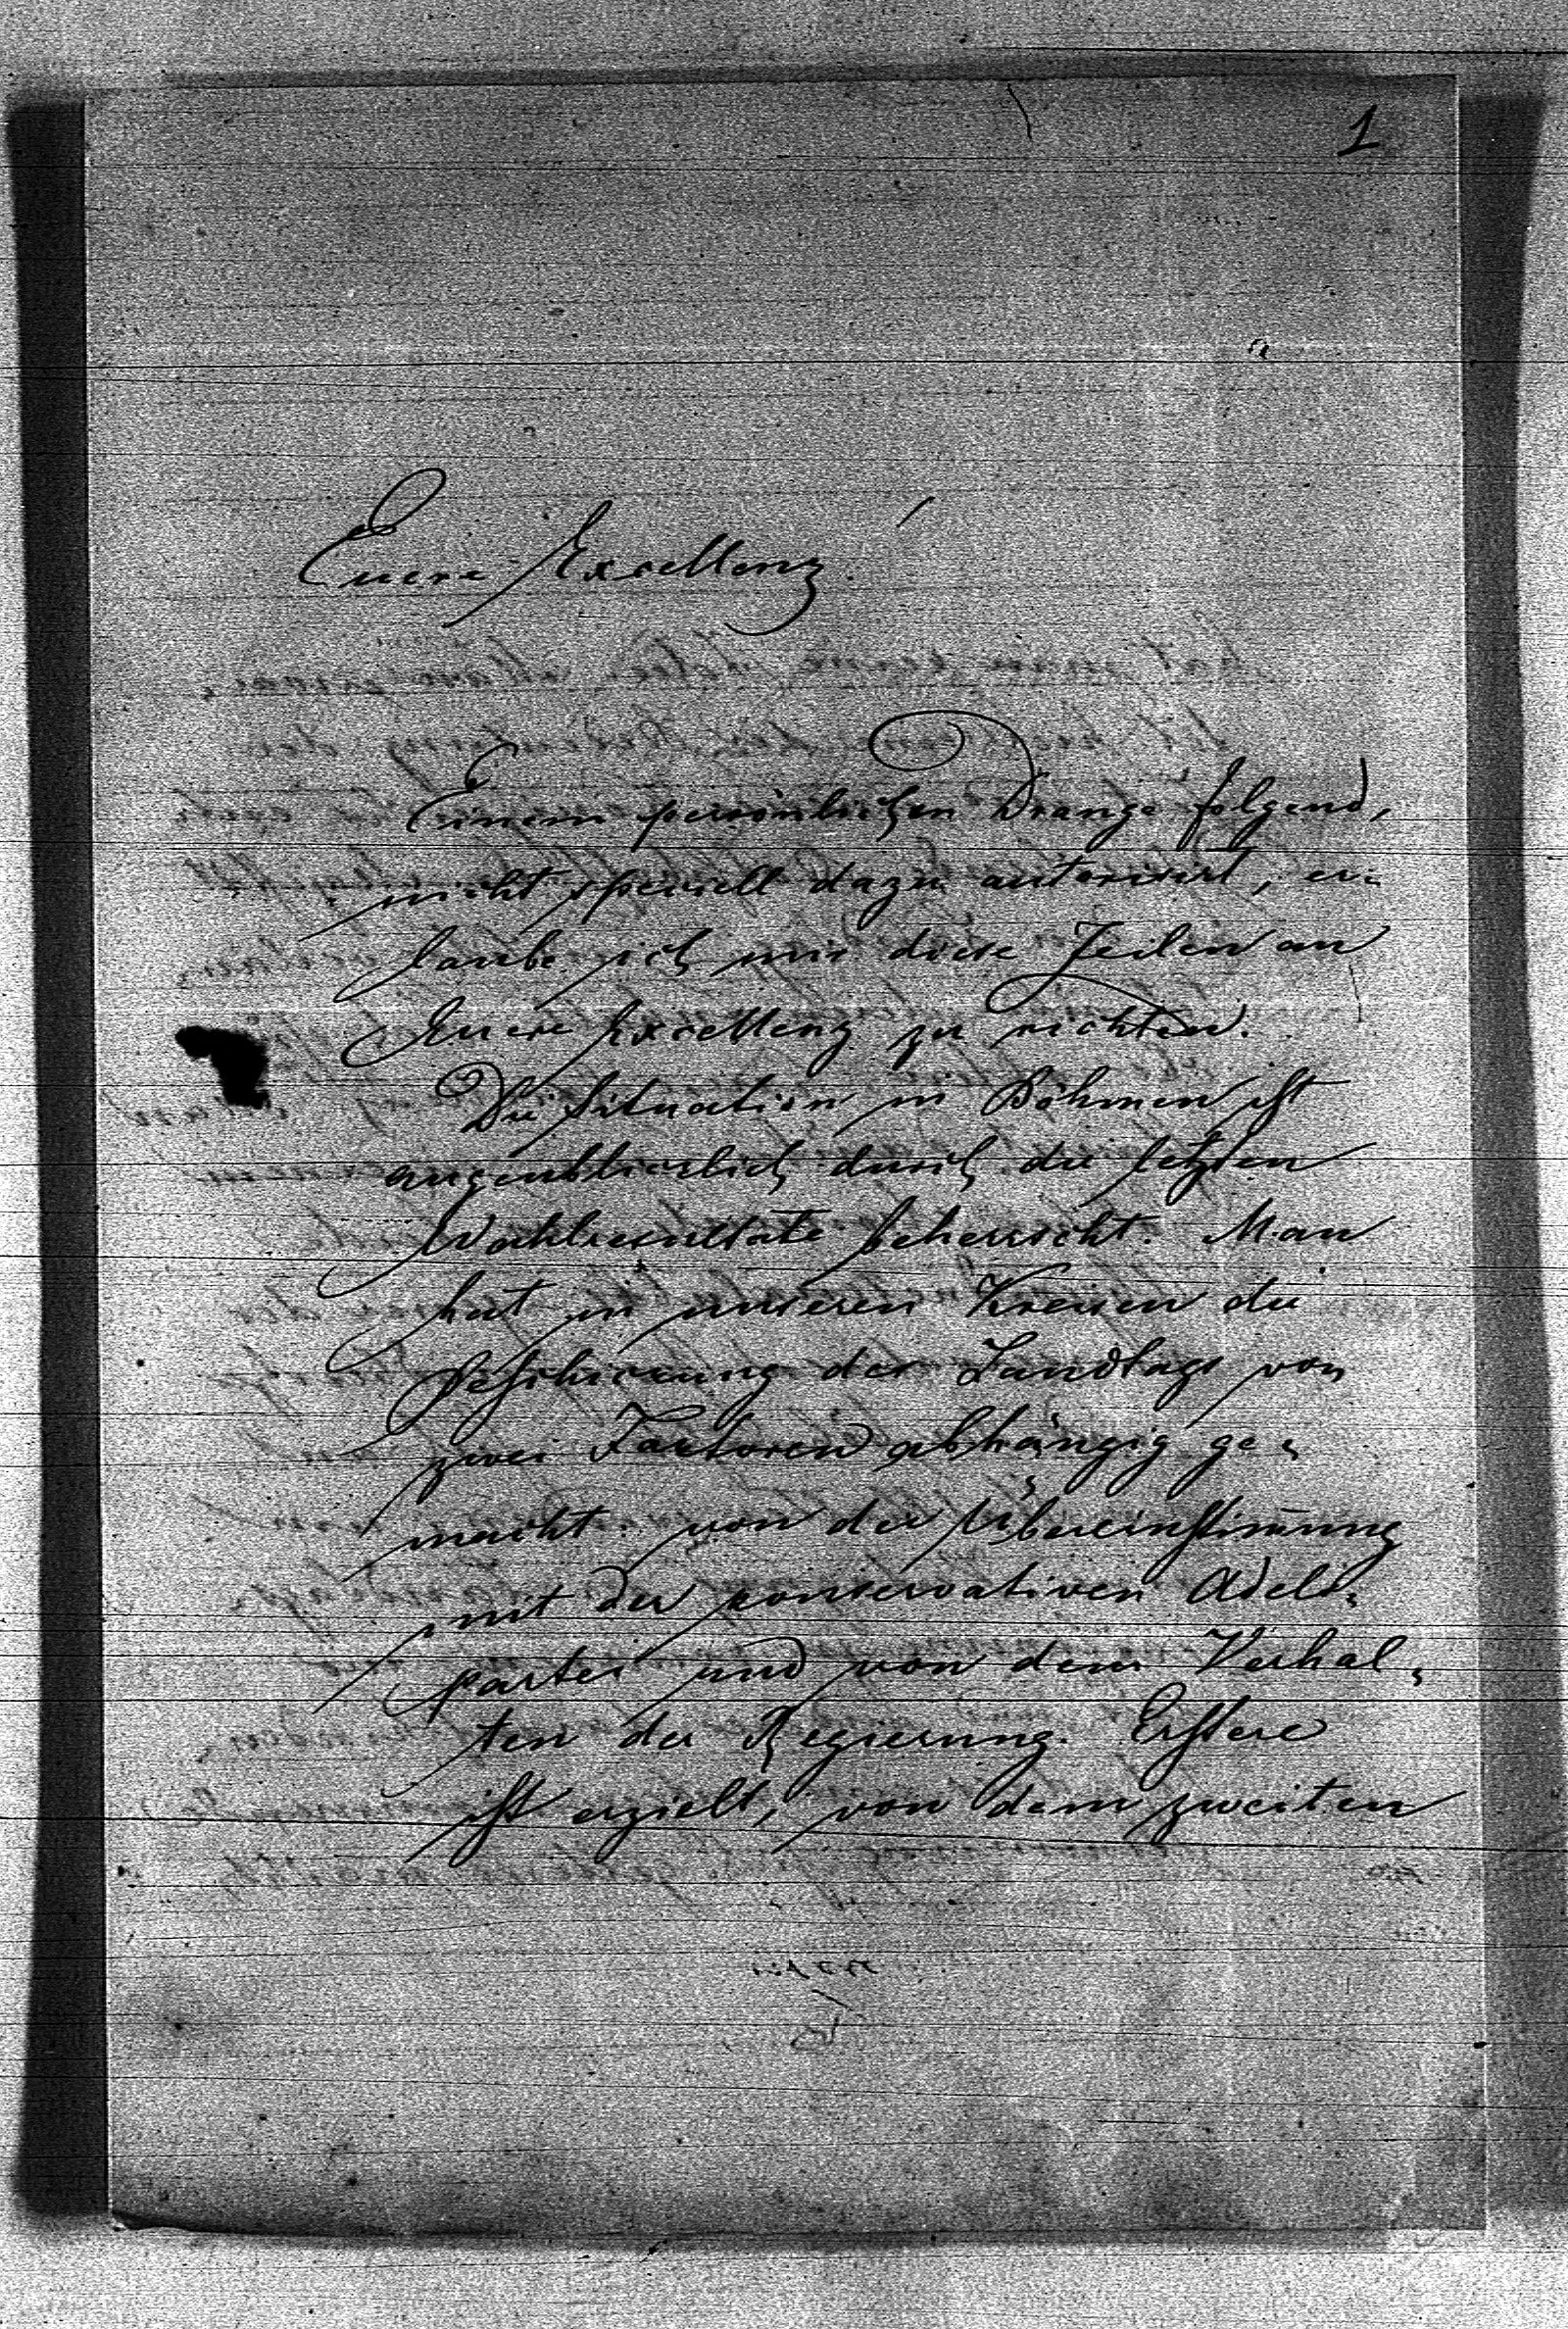 1
Euere Excellenz!
Einem persönlichen Drange folgend,
nicht speciell dazu autorisirt, er-
laube ich mir diese Zeilen an
Euere Excellenz zu richten.
Die Situation in Böhmen ist
augenblicklich durch die letzten
Wahlresultate beherrscht. Man
hat in unseren Kreisen die
Beschickung des Landtags von
zwei Factoren abhängig ge-
macht: von der Übereinstimmung
mit der conservativen Adels-
partei und von dem Verhal-
ten der Regierung. Erstere
ist erzielt, von dem zweiten